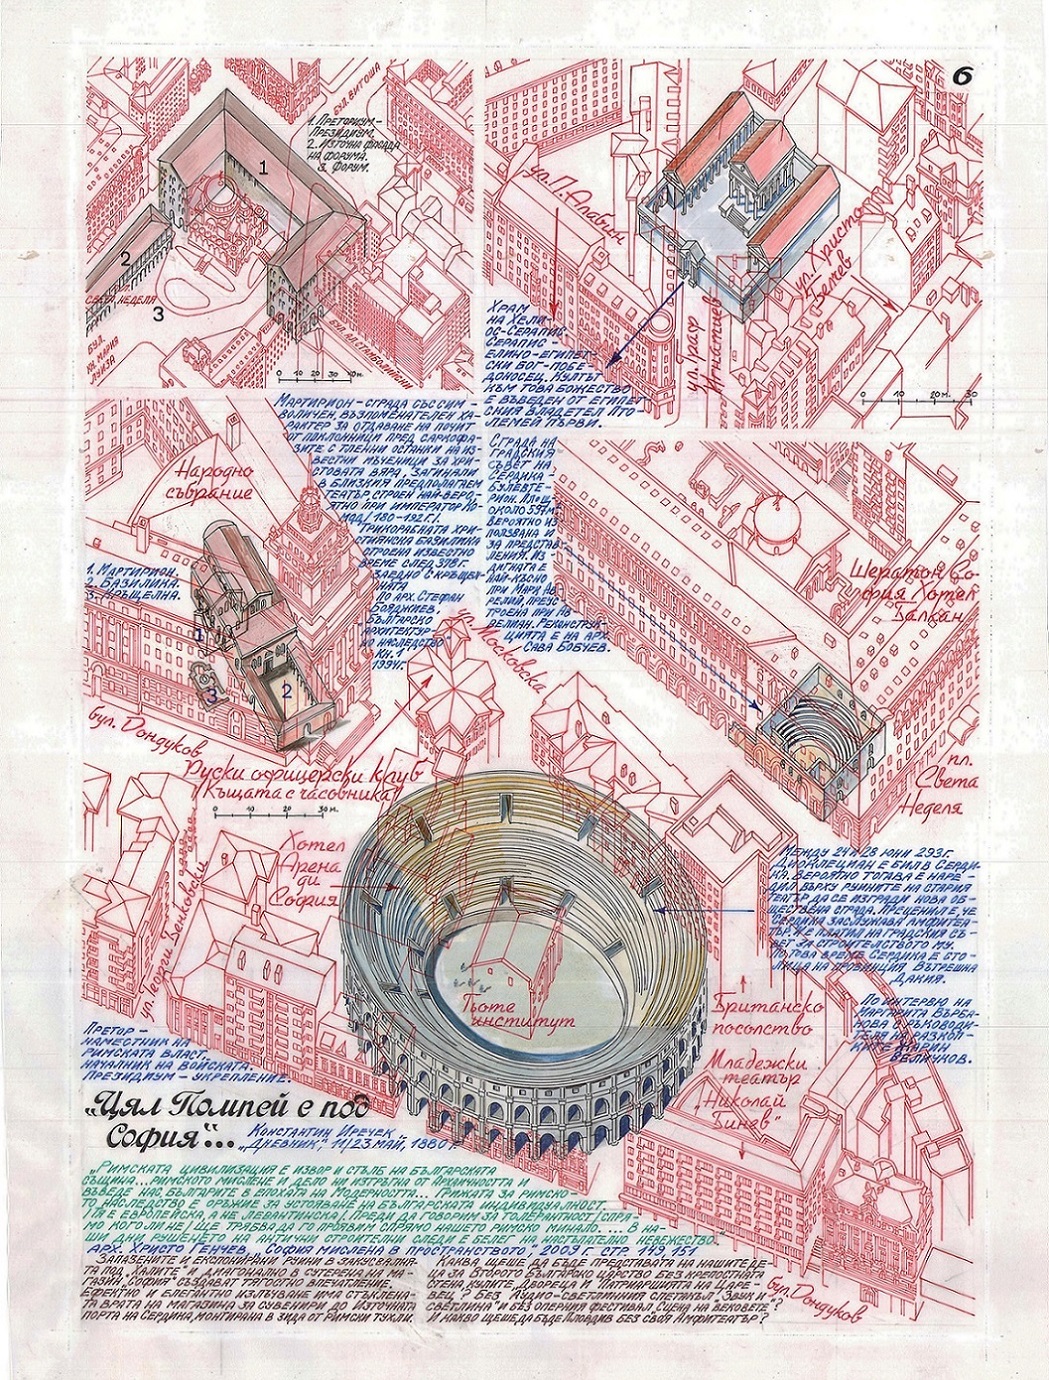 6
БУЛ. ВИТОША
1. ПРЕТОРИУМ-
ПРЕЗИДИУМ.
2. ИЗТОЧНА ФАСАДА
НА ФОРУМА.
3. ФОРУМ.
1
2
3
СВЕТА НЕДЕЛЯ
БУЛ.
КН. МАРИЯ
ЛУИЗА
БУЛ. АЛ. СТАМБОЛИЙСКИ
0 10 20 30 40 м.
ул. П. Алабин
ул. Христо
Белчев
ул. Граф
Игнатиев
ХРАМ
НА ХЕЛИ-
ОС-СЕРАПИС
СЕРАПИС -
ЕЛИНО-ЕГИПЕТ-
СКИ БОГ-ПОБЕ-
ДОНОСЕЦ. КУЛТЪТ
КЪМ ТОВА БОЖЕСТВО
Е ВЪВЕДЕН ОТ ЕГИПЕТ-
СКИЯ ВЛАДЕТЕЛ ПТО-
ЛЕМЕЙ ПЪРВИ.
0 10 20м. 30
МАРТИРИОН-СГРАДА СЪС СИМ-
ВОЛИЧЕН, ВЪЗПОМЕНАТЕЛЕН ХА-
РАКТЕР ЗА ОТДАВАНЕ НА ПОЧИТ
ОТ ПОКЛОННИЦИ ПРЕД САРКОФА-
ЗИТЕ С ТЛЕННИ ОСТАНКИ НА ИЗ-
ВЕСТНИ МЪЧЕНИЦИ ЗА ХРИ-
СТОВАТА ВЯРА, ЗАГИНАЛИ
В БЛИЗКИЯ ПРЕДПОЛАГАЕМ
ТЕАТЪР СТРОЕН НАЙ-ВЕРО-
ЯТНО ПРИ ИМПЕРАТОР КО-
МОД / 180-192 Г./.
ТРИКОРАБНАТА ХРИ-
СТИЯНСКА БАЗИЛИКА
СТРОЕНА ИЗВЕСТНО
ВРЕМЕ СЛЕД 378 Г.
ЗАЕДНО С КРЪЩЕЛ-
НАТА
ПО АРХ. СТЕФАН
БОЯДЖИЕВ,
БЪЛГАРСКО
АРХИТЕКТУР-
НО НАСЛЕДСТВО
КН. 1
1994 Г.
Народно
събрание
1. МАРТИРИОН.
2. БАЗИЛИКА.
3. КРЪЩЕЛНА.
1
2
3
бул. Дондуков
Руски офицерски клуб
"Къщата с часовника"
0 10 20 30 м.
ул. Московска
СГРАДА НА
ГРАДСКИЯ
СЪВЕТ НА
СЕРДИКА-
БУЛЕВТЕ-
РИОН. ПЛОЩ
ОКОЛО 597М²
ВЕРОЯТНО ИЗ-
ПОЛЗВАНА И
ЗА ПРЕДСТАВ-
ЛЕНИЯ. ИЗ-
ДИГНАТА Е
НАЙ-КЪСНО
ПРИ МАРК АВ-
РЕЛИЙ, ПРЕУС-
ТРОЕНА ПРИ АВ-
РЕЛИАН. РЕКОНСТРУК-
ЦИЯТА Е НА АРХ.
САВА БОБЧЕВ.
Шератон Со-
фия Хотел
Балкан
пл.
Света
Неделя
Хотел
Арена
ди
София
ул. Георги Бенковски
Гьоте
институт
МЕЖДУ 24 И 28 ЮНИ 293 Г.
ДИОКЛЕЦИАН Е БИЛ В СЕРДИ-
КА. ВЕРОЯТНО ТОГАВА Е НАРЕ-
ДИЛ ВЪРХУ РУИНИТЕ НА СТАРИЯ
ТЕАТЪР ДА СЕ ИЗГРАДИ НОВА ОБ-
ЩЕСТВЕНА СГРАДА. ПРЕЦЕНИЛ Е, ЧЕ
СЕРДИКА ЗАСЛУЖАВА АМФИТЕА-
ТЪР И Е ПЛАТИЛ НА ГРАДСКИЯ СЪ-
ВЕТ ЗА СТРОИТЕЛСТВОТО МУ.
ПО ТОВА ВРЕМЕ СЕРДИКА Е СТО-
ЛИЦА НА ПРОВИНЦИЯ ВЪТРЕШНА
ДАКИЯ.
ПО ИНТЕРВЮ НА
МАРГАРИТА ВЪРБА-
НОВА С РЪКОВОДИ-
ТЕЛЯ НА РАЗКОП-
КИТЕ ЖАРИН
ВЕЛИЧКОВ.
Британско
посолство
Младежки
театър
„Николай
Бинев"
ПРЕТОР-
НАМЕСТНИК НА
РИМСКАТА ВЛАСТ,
НАЧАЛНИК НА ВОЙСКАТА.
ПРЕЗИДИУМ-УКРЕПЛЕНИЕ.
„Цял Помпей е под
София"...
КОНСТАНТИН ИРЕЧЕК
„ДНЕВНИК", 11/23 МАЙ, 1880 Г.
„РИМСКАТА ЦИВИЛИЗАЦИЯ Е ИЗВОР И СТЪЛБ НА БЪЛГАРСКАТА
СЪЩИНА...РИМСКОТО МИСЛЕНЕ И ДЕЛО НИ ИЗТРЪГНА ОТ АРХАИЧНОСТТА И
ВЪВЕДЕ НАС, БЪЛГАРИТЕ В ЕПОХАТА НА МОДЕРНОСТТА... ГРИЖАТА ЗА РИМСКО-
ТО НАСЛЕДСТВО Е ОРЪЖИЕ ЗА УСТОЯВАНЕ НА БЪЛГАРСКАТА ИНДИВИДУАЛНОСТ.
ТЯ Е ЕВРОПЕЙСКА, А НЕ ЛЕВАНТИНСКА. ПРЕДИ ДА ГОВОРИМ ЗА ТОЛЕРАНТНОСТ / СПРЯ-
МО КОГО ЛИ НЕ / ЩЕ ТРЯБВА ДА ГО ПРОЯВИМ СПРЯМО НАШЕТО РИМСКО МИНАЛО. ... В НА-
ШИ ДНИ РУШЕНЕТО НА АНТИЧНИ СТРОИТЕЛНИ СЛЕДИ Е БЕЛЕГ НА НАСТЪПАТЕЛНО НЕВЕЖЕСТВО."
АРХ. ХРИСТО ГЕНЧЕВ, „СОФИЯ МИСЛЕНА В ПРОСТРАНСТВОТО", 2009 Г. СТР. 149, 151
ЗАПАЗЕНИТЕ И ЕКСПОНИРАНИ РУИНИ В ЗАКУСВАЛНЯ-
ТА ПОД „ХАЛИТЕ" И ДОКАТО НАЛИЧНО В СУТЕРЕНА НА МА-
ГАЗИН „СОФИЯ" СЪЗДАВАТ ТЯГОСТНО ВПЕЧАТЛЕНИЕ.
ЕФЕКТНО И ЕЛЕГАНТНО ИЗЛЪЧВАНЕ ИМА СТЪКЛЕНА-
ТА ВРАТА НА МАГАЗИНА ЗА СУВЕНИРИ ДО ИЗТОЧНАТА
ПОРТА НА СЕРДИКА, МОНТИРАНА В ЗИДА ОТ РИМСКИ ТУХЛИ.
КАКВА ЩЕШЕ ДА БЪДЕ ПРЕДСТАВАТА НА НАШИТЕ ДЕ-
ЦА ЗА ВТОРОТО БЪЛГАРСКО ЦАРСТВО БЕЗ КРЕПОСТНАТА
СТЕНА, КУЛИТЕ, ДВОРЕЦА И ПАТРИАРШИЯТА НА „ЦАРЕ-
ВЕЦ"? БЕЗ „АУДИО-СВЕТЛИННИЯ СПЕКТАКЪЛ „ЗВУК И
СВЕТЛИНА" И БЕЗ ОПЕРНИЯ ФЕСТИВАЛ „СЦЕНА НА ВЕКОВЕТЕ"?
И КАКВО ЩЕШЕ ДА БЪДЕ ПЛОВДИВ БЕЗ СВОЯ АМФИТЕАТЪР?
бул. Дондуков